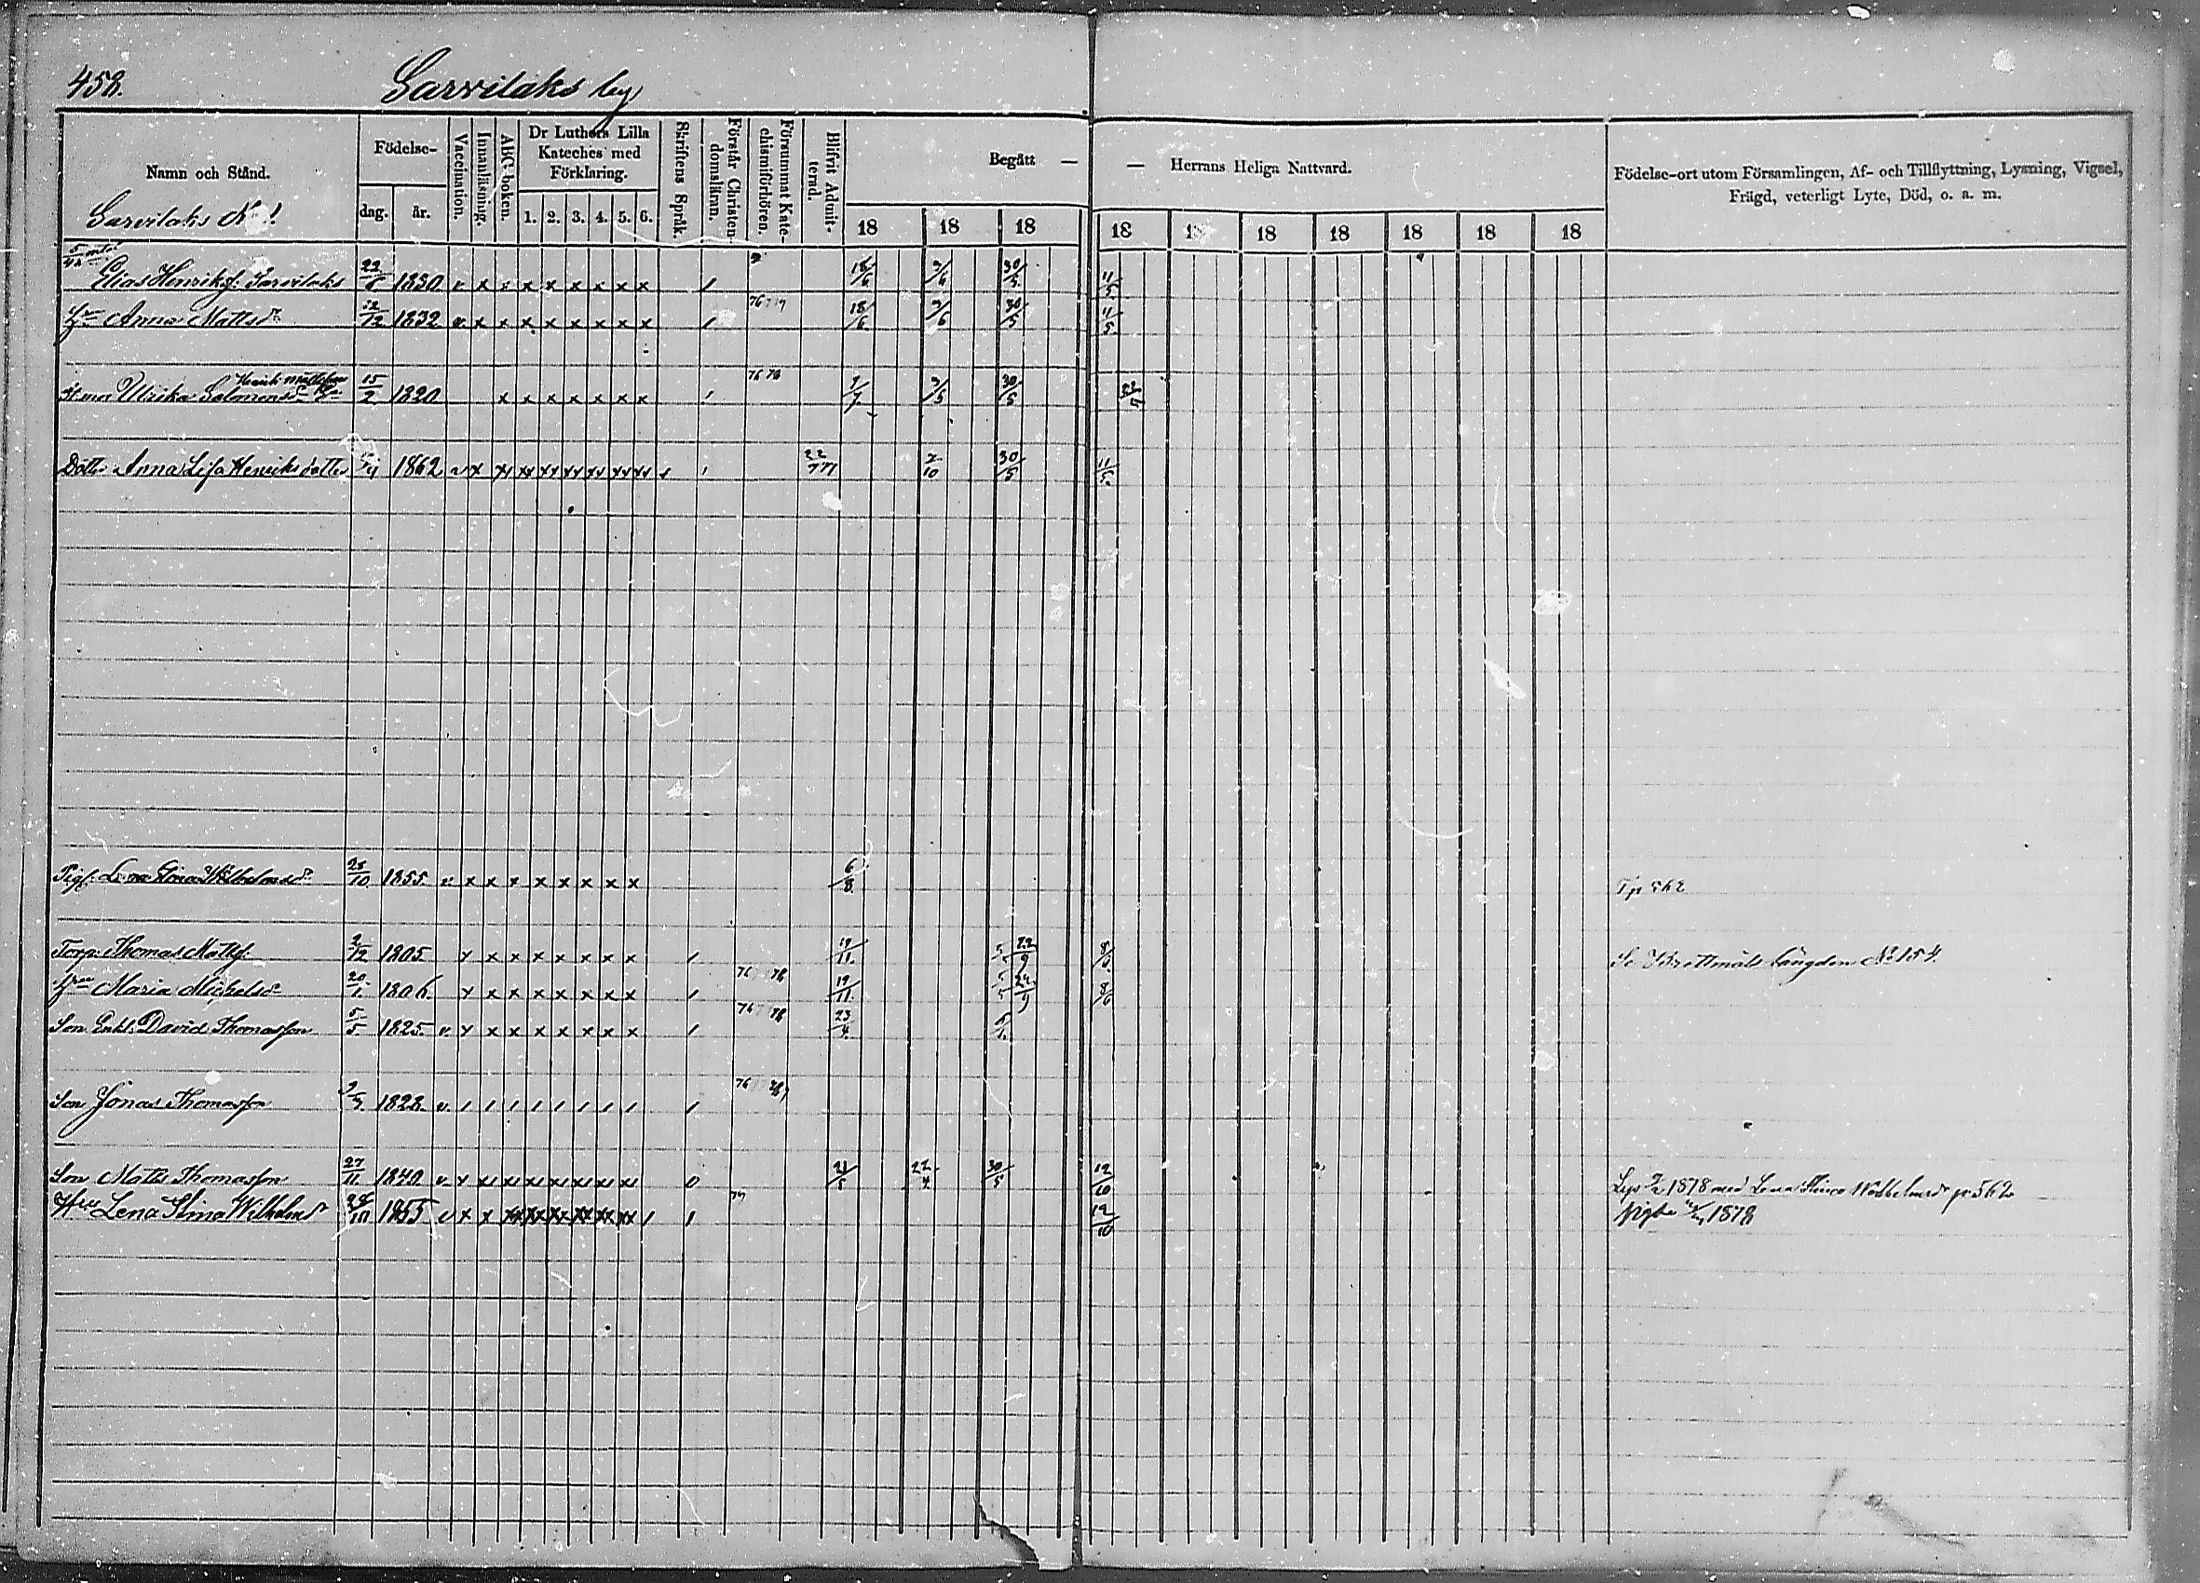 458. Sarvilaks by
Namn och Stånd. Födelse- dag. år. Vaccination. Innanläsning. ABC-boken. Dr Luthers Lilla Kateches med Förklaring. 1. 2. 3. 4. 5. 6. Skriftens Språk. Förstår Christendomsläran. Försummat Katechismiförhören. Blifvit Admitterad. Begått — — Herrans Heliga Nattvard. 18 18 18 18 18 18 18 18 18 18
Födelse-ort utom Församlingen, Af- och Tillflyttning, Lysning, Vigsel, Frägd, veterligt Lyte, Död, o. a. m.
Sarvilaks No 1
Elias Henriksf. Sarvilaks 22/8 1830 v x x x x x x x x / 18/6 9/6 30/5 11/5
Anna Mattsdr /12 1832 v x x x x x x x x / 76 79 18/6 9/6 30/5 11/5
Henrik Mattsson
Ulrika Salomonsdr 15/2 1820 x x x x x x x / 76 78 30/5
Dottr Anna Lisa Henriksdotter 1862 22/7 71 2/10 30/5 11/5
Pig. Lena Stina Wilhelmsdr 28/10 1855 v x x x x x x x x 6/8 Tp 562
Torp. Thomas Mattsf. 2/12 1805 x x x x x x x x / 19/11 22/9 8/6 Se Brottmåls längden No 154.
Hu Maria Michelsdr 20/1 1806. x x x x x x x x / 76 78 19/11 5/5 22/9 8/6
Son Enkl. David Thomasson 5/5 1825. v. x x x x x x x x / 76 78 23/4
Son Jonas Thomasson 1828 v. / / / / / / / / / 76
Son Matts Thomasson 27/11 1840 v. 0 21/5 22/4 30/5 12/10 Lys 1878 med Lena Stina Wilhelmsdr p 562
Hu Lena Stina Wilhelmsdr 28/10 1855 v x x xx xx xx xx xx xx xx / / 79 12/10 vigde 1878